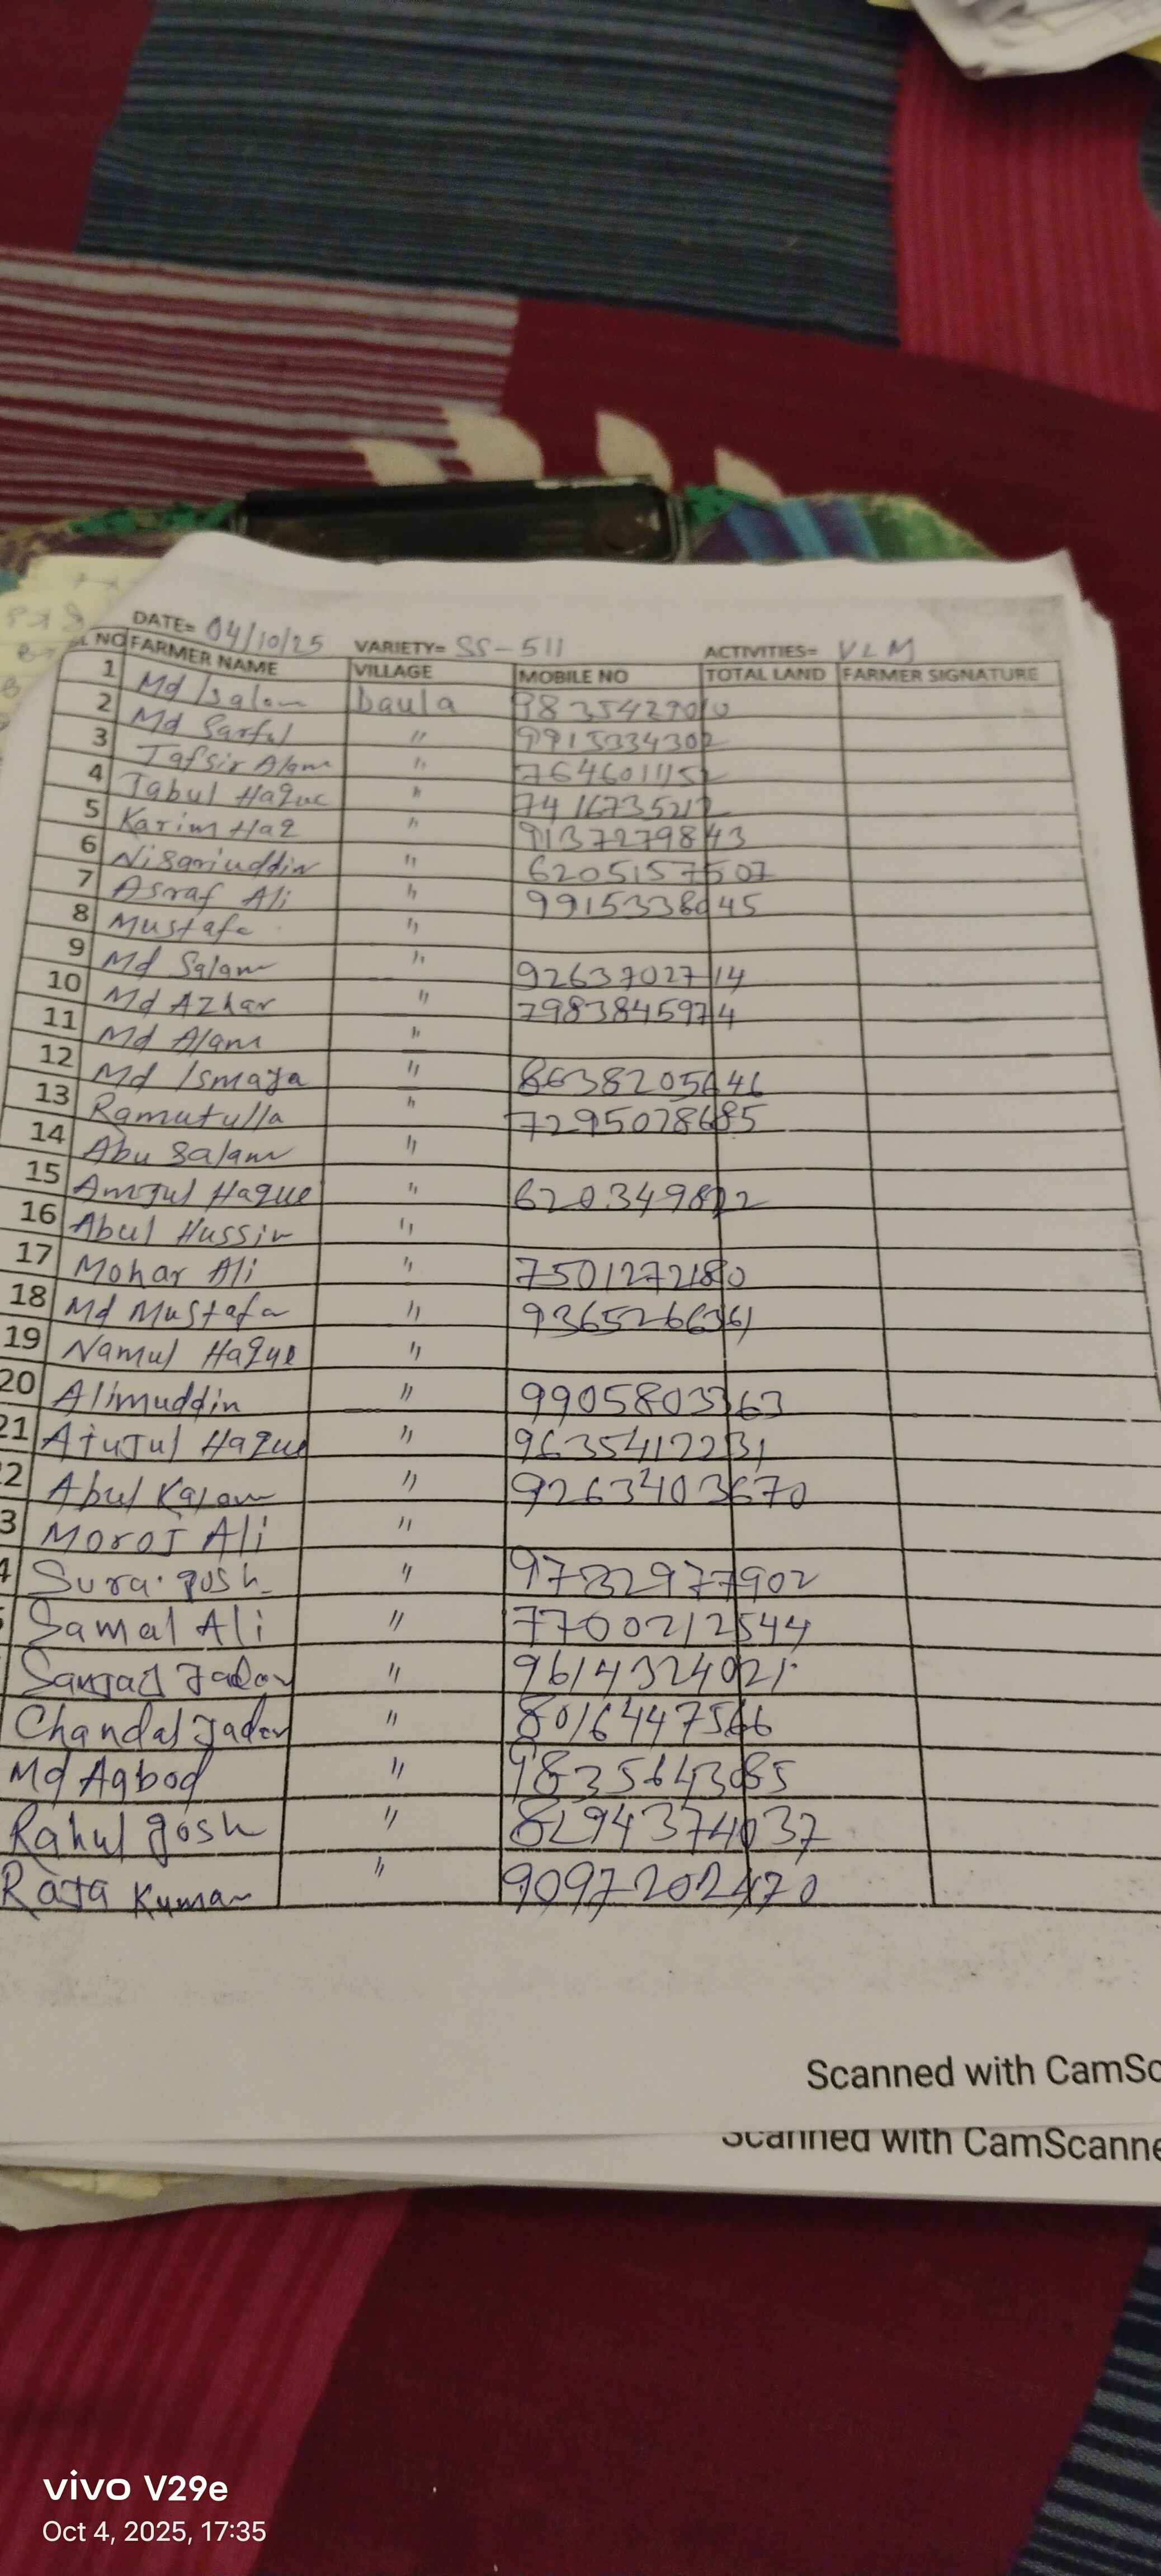 DATE= 04/10/25 VARIETY= SS-511 ACTIVITIES= VLM
L NO FARMER NAME VILLAGE MOBILE NO TOTAL LAND FARMER SIGNATURE
1 Md Islam Daula 9835427010
2 Md Sarful " 9915334302
3 Tafsir Alam " 7646011152
4 Tabul Haque " 7416735212
5 Karim Haq " 9137279843
6 Nisariuddin " 6205157507
7 Asraf Ali " 9915338945
8 Mustafa "
9 Md Salam " 9263702714
10 Md Azhar " 7983845974
11 Md Alam "
12 Md Ismaja " 8638205646
13 Ramutulla " 7295028685
14 Abu Salam "
15 Amjul Haque " 620349822
16 Abul Hussin "
17 Mohar Ali " 7501272180
18 Md Mustafa " 9365266361
19 Namul Haque "
20 Alimuddin " 9905803363
21 Ajujul Haque " 9635412231
2 Abul Kalam " 9263403670
3 Moroj Ali "
4 Sura gosh " 9732977902
Samal Ali " 7700212544
Sanjad Jadav " 9614324021
Chandal Jadav " 8016447566
Md Aabod " 9835643085
Rahul gosh " 8294374037
Raja Kumar " 9097202470
Scanned with CamSc
Scanned with CamScanne
vivo V29e
Oct 4, 2025, 17:35